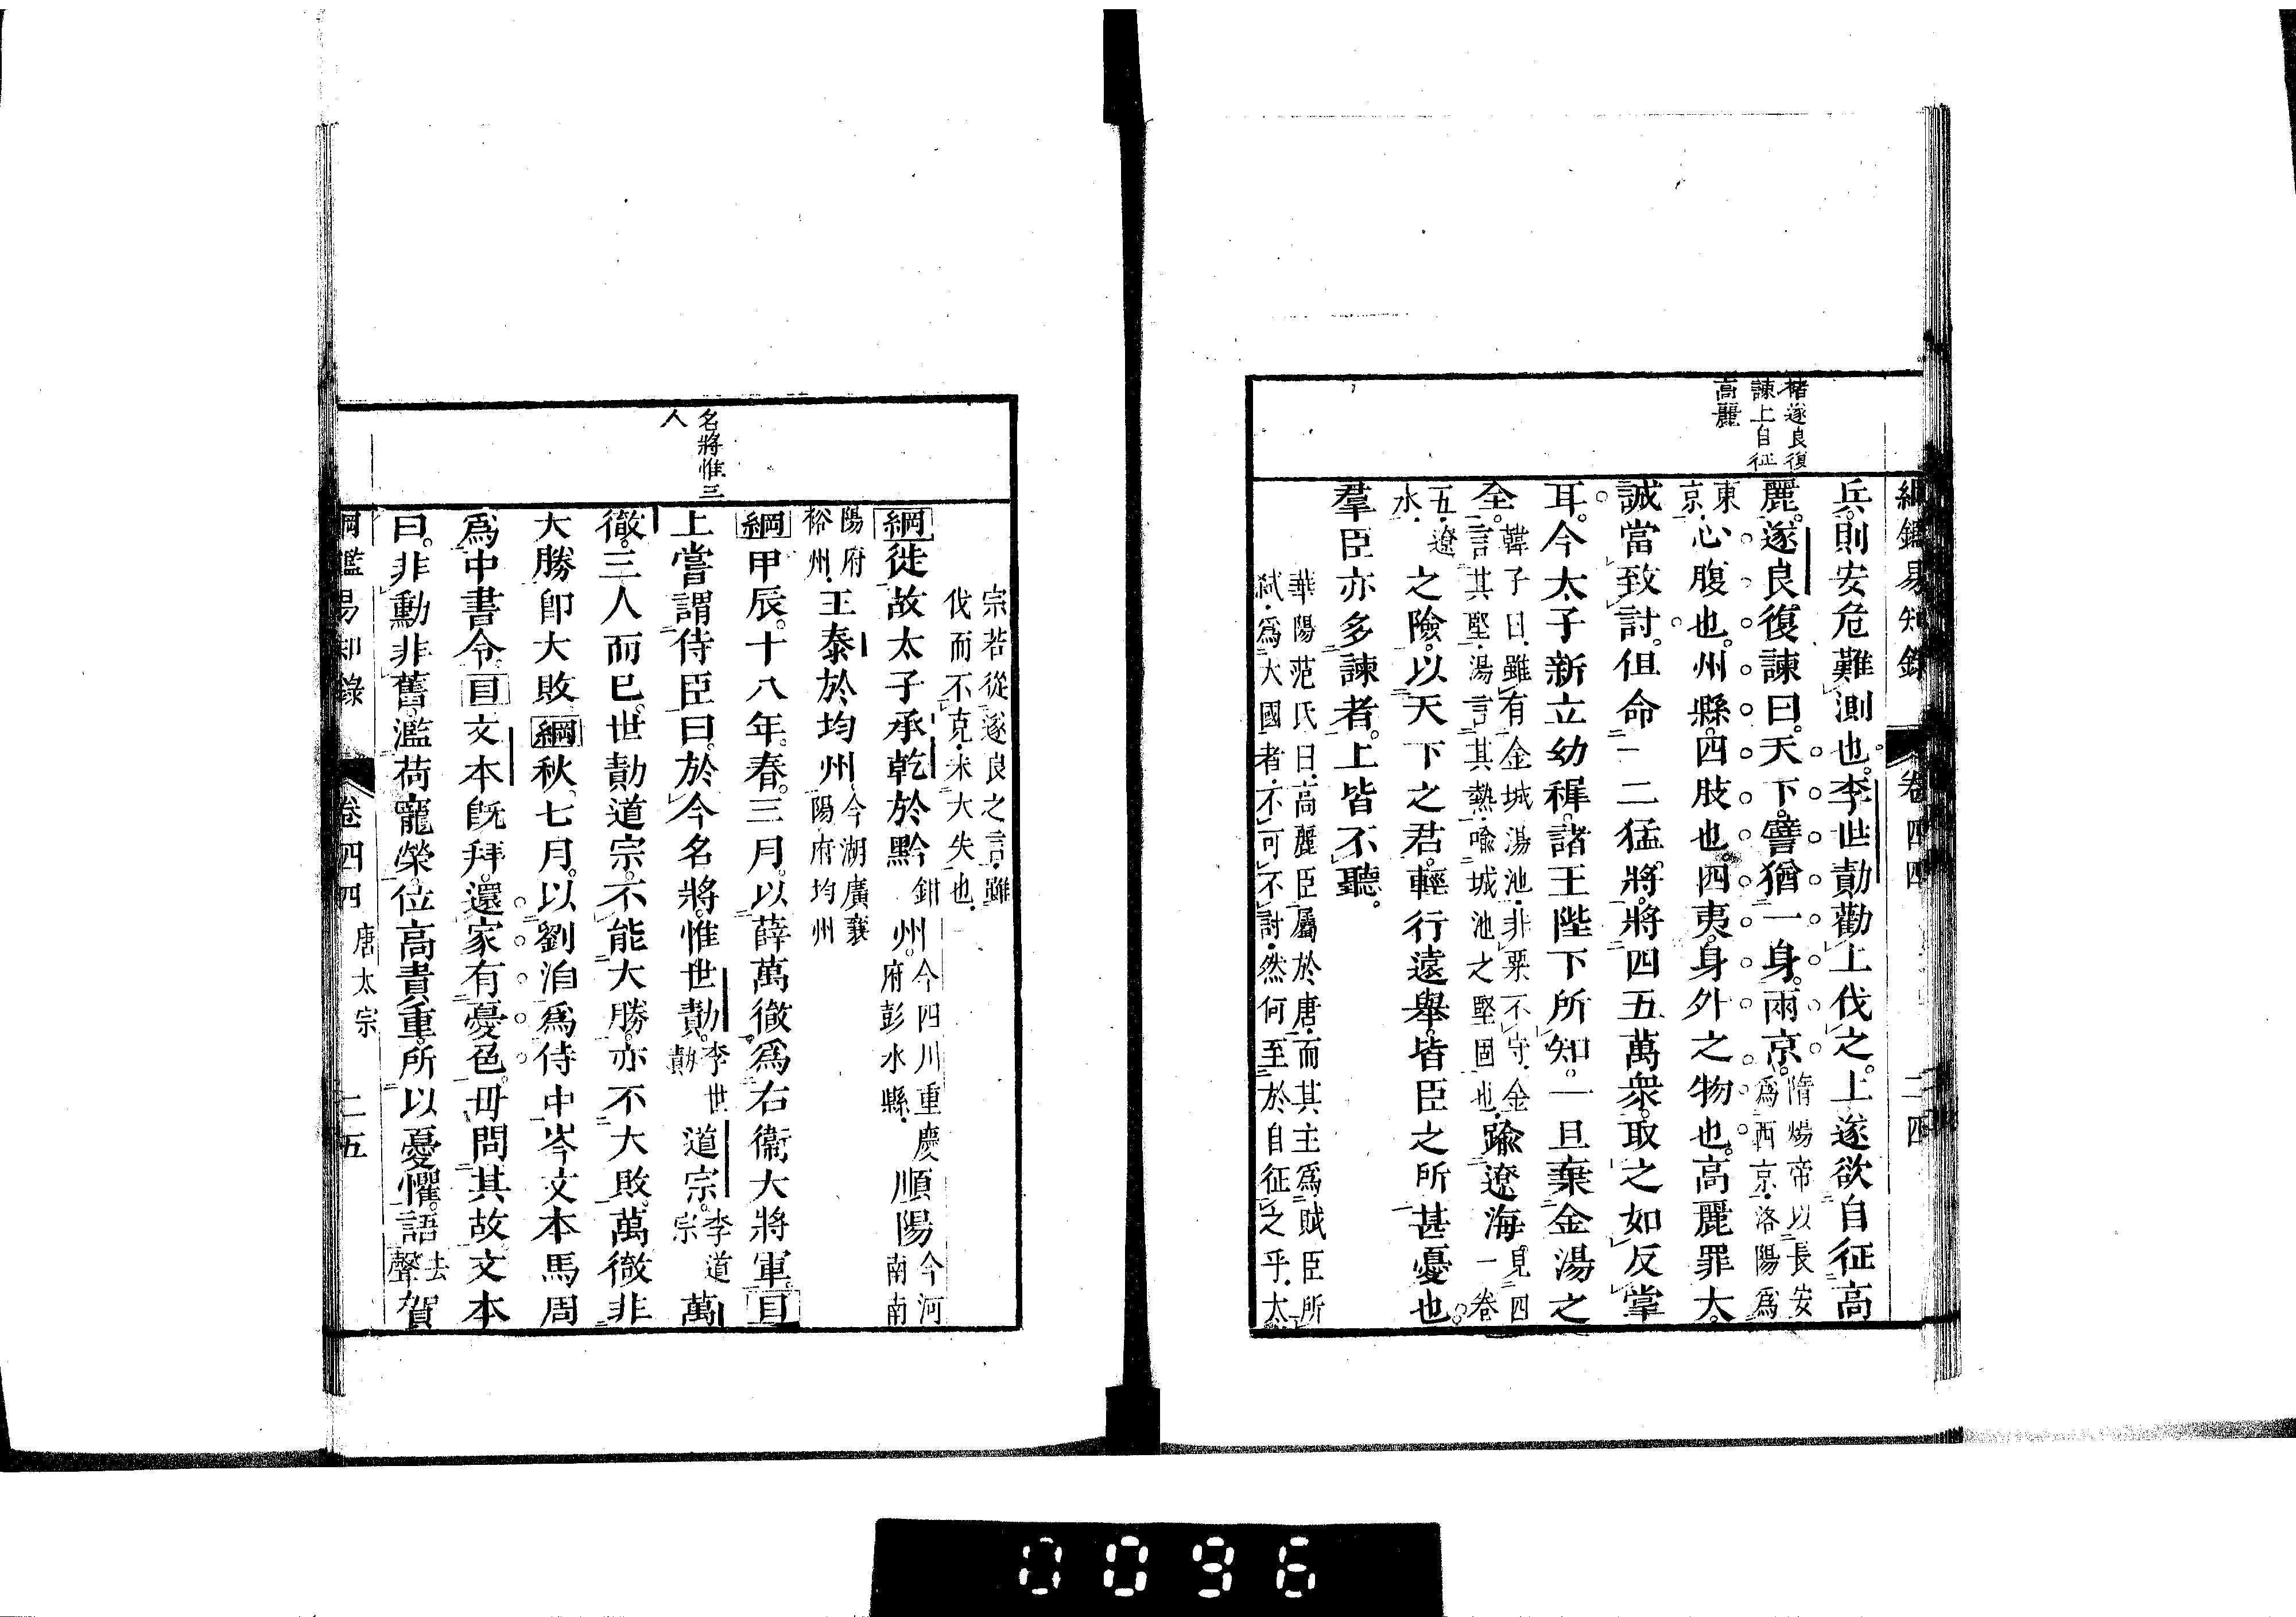 綱鑑易知錄 卷四四 二四
褚遂良復
諫上自征
高麗
兵。則安危難測也。李世勣勸上伐之。上遂欲自征高
麗。遂良復諫曰。天下。譬猶一身。兩京。隋煬帝以長安爲西京.洛陽爲
東京.心腹也。州縣。四肢也。四夷。身外之物也。高麗罪大。
誠當致討。但命一二猛將。將四五萬衆。取之如反掌
耳。今太子新立幼穉。諸王陛下所知。一旦棄金湯之
全。韓子曰.雖有金城湯池.非粟不守.金言其堅.湯言其熱.喻城池之堅固也.踰遼海。見四一卷
五.遼水.之險。以天下之君。輕行遠舉。皆臣之所甚憂也。
羣臣亦多諫者。上皆不聽。
華陽范氏曰.高麗臣屬於唐.而其主爲賊臣所
弑.爲大國者.不可不討.然何至於自征之乎.太
宗若從遂良之言.雖
伐而不克.未大失也.
名將惟三
人
綱徙故太子承乾於黔鉗州。今四川重慶府彭水縣.順陽今河南南
陽府裕州.王泰於均州今湖廣襄陽府均州
綱甲辰。十八年。春。三月。以薛萬徹。爲右衞大將軍。目
上嘗謂侍臣曰。於今名將。惟世勣。李世勣道宗。李道宗萬
徹。三人而已。世勣道宗。不能大勝。亦不大敗。萬徹非
大勝卽大敗綱秋。七月。以劉洎爲侍中岑文本馬周
爲中書令。目文本旣拜。還家有憂色。毋問其故文本
曰。非勳非舊。濫荷寵榮。位高責重。所以憂懼。語去聲賀
綱鑑易知錄 卷四四 唐太宗 二五
0096